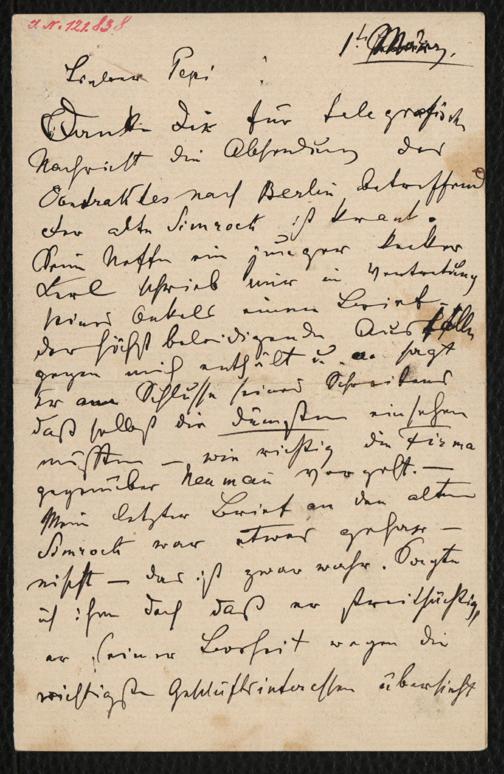 J. N. 122.838
1t März.
Lieber Pepi
Danke Dir für telegrafisch
Nachricht die Absendung des
Contraktes nach Berlin betreffend
der alte Simrock ist krank.
Sein Neffe ein junger kecker
Kerl schrieb mir in Vertretung
seines Onkels einen Brief –
der höchst beleidigende Ausfälle
gegen mich enthält u. sagt
er am Schlusse seines Schreibens
daß selbst die dümsten einsehen
müssten – wie wichtig die Firma
gegenüber Neuman vorgeht. –
Mein letzter Brief an den alten
Simrock war etwas gehar–
nischt – das ist zwar wahr. Sagte
ich ihm doch daß er streitsüchtig,
er seiner Bosheit wegen die
wichtigste Geschäftsinteressen übersieht